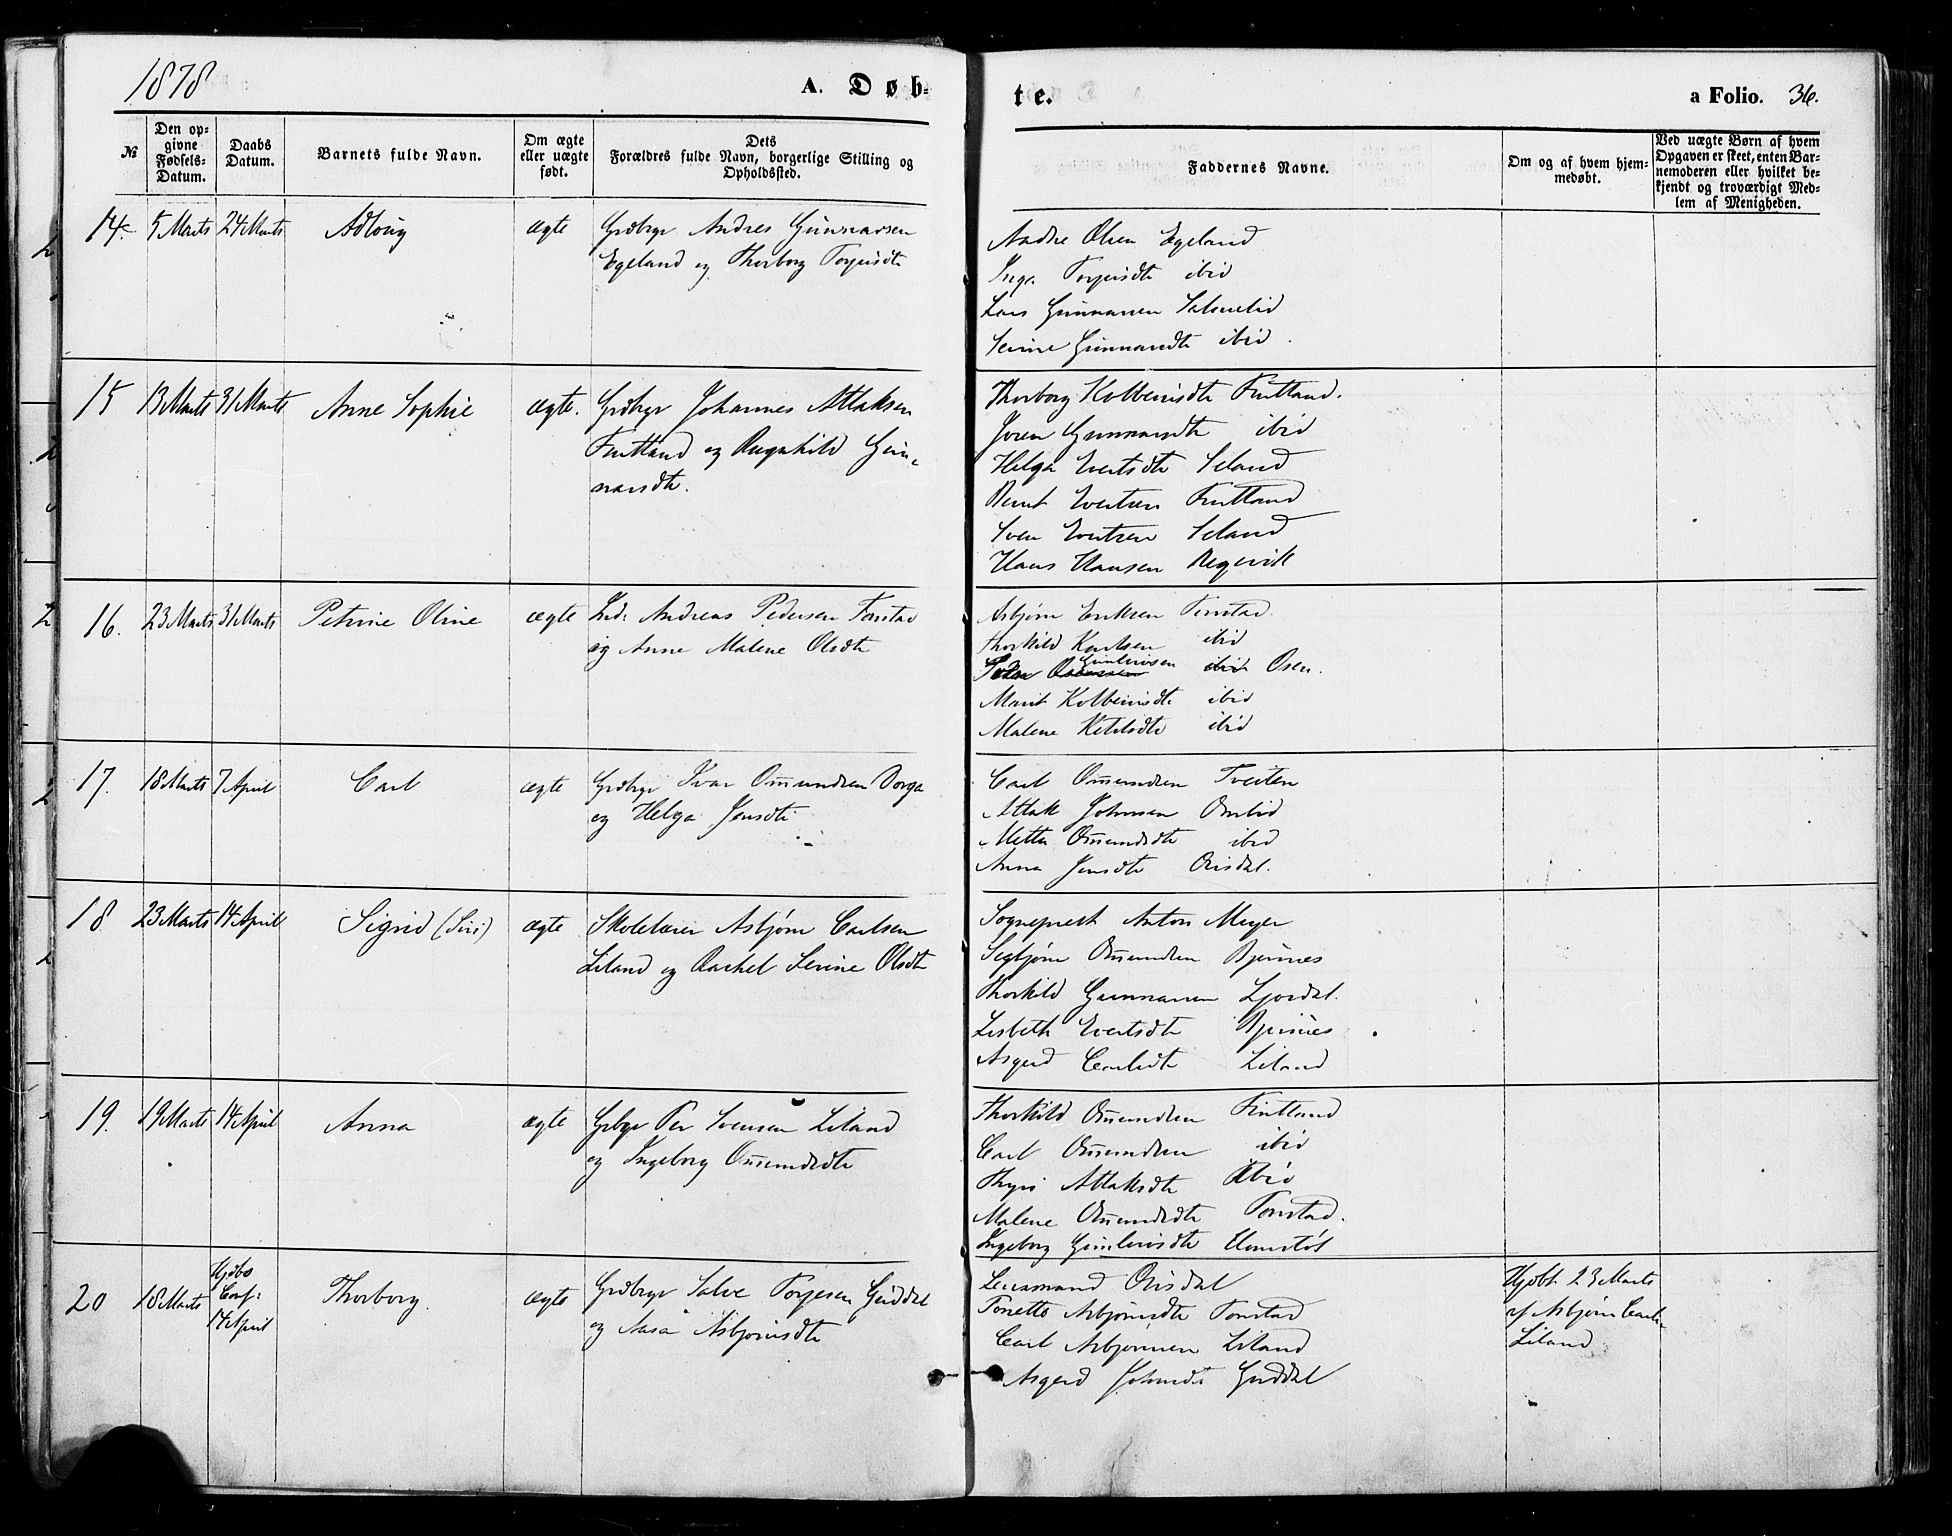 1878
A. Døb-
te.
a Folio. 36.
№
Den op-
givne
Fødsels-
Datum.
Daabs
Datum.
Barnets fulde Navn.
Om ægte
eller uægte
født.
Dets
Forældres fulde Navn, borgerlige Stilling og
Opholdssted.
Faddernes Navne.
Om og af hvem hjem-
medøbt.
Ved uægte Børn af hvem
Opgaven er skeet, enten Bar-
nemoderen eller hvilket be-
kjendt og troværdigt Med-
lem af Menigheden.
14. 5 Marts 24 Marts Adloug ægte Grdbrgr Andres Gunnarsen
Egeland og Thorborg Torjusdt
Andre Olsen Egeland
Inga Torjusdt ibid
Lars Gunnarsen Salmelid
Serine Gunnarsdt ibid.
15 13 Marts 31 Marts Anne Sophie ægte. Grdbrgr Johannes Atlaksen
Fintland og Ragnhild Gun-
narsdt.
Thorborg Kolbeinsdt Fintland.
Joren Gunnarsdt ibid
Helga Evertsdt Seland
Bernt Evertsen Fintland
Sven Evertsen Seland
Hans Hansen Regevik
16. 23 Marts 31 Marts Petrine Oline ægte Ind: Andreas Pedersen Tonstad
og Anne Malene Olsdt
Asbjørn Eriksen Tonstad.
Thorkild Karlsen ibid
Gunleivsen ibid Osen.
Marit Kolbeinsdt ibid
Malene Ketelsdt ibid
17. 18 Marts 7 April Carl ægte Grdbrgr Ivar Omundsen Dorga
og Helga Jensdt
Carl Omundsen Tveiten
Atlak Johnsen Omlid
Mette Omundsdt ibid
Anna Jensdt Ovisdal.
18 23 Marts 14 April Sigrid (Siri) ægte Skolelærer Asbjørn Carlsen
Liland og Rachel Serine Olsdt
Sogneprest Anton Meyer
Segbjørn Omundsen Bjunes
Thorkild Gunnarsen Ljosdal.
Lisbeth Evertsdt Bjunes
Asgerd Carlsdt Liland
19. 19 Marts 14 April Anna ægte Grbgr Per Svensen Liland
og Ingeborg Omundsdt
Thorkild Omundsen Fintland
Carl Omundsen ibid
Thyri Atlaksdt ibid
Malene Omundsdt Tonstad.
Ingeborg Gunleivsdt
20 18 Marts Hjdbs
Conf:
14 April Thorborg. ægte Grdbrgr Salve Torjesen Guddal
og Aasa Asbjørnsdt
Lensmand Ovisdal
Tonette Asbjørnsdt Tonstad
Carl Asbjørnsen Liland
Asgerd Johnsdt Guddal
Hjdbt 23 Marts
af Asbjørn Carls-
Liland